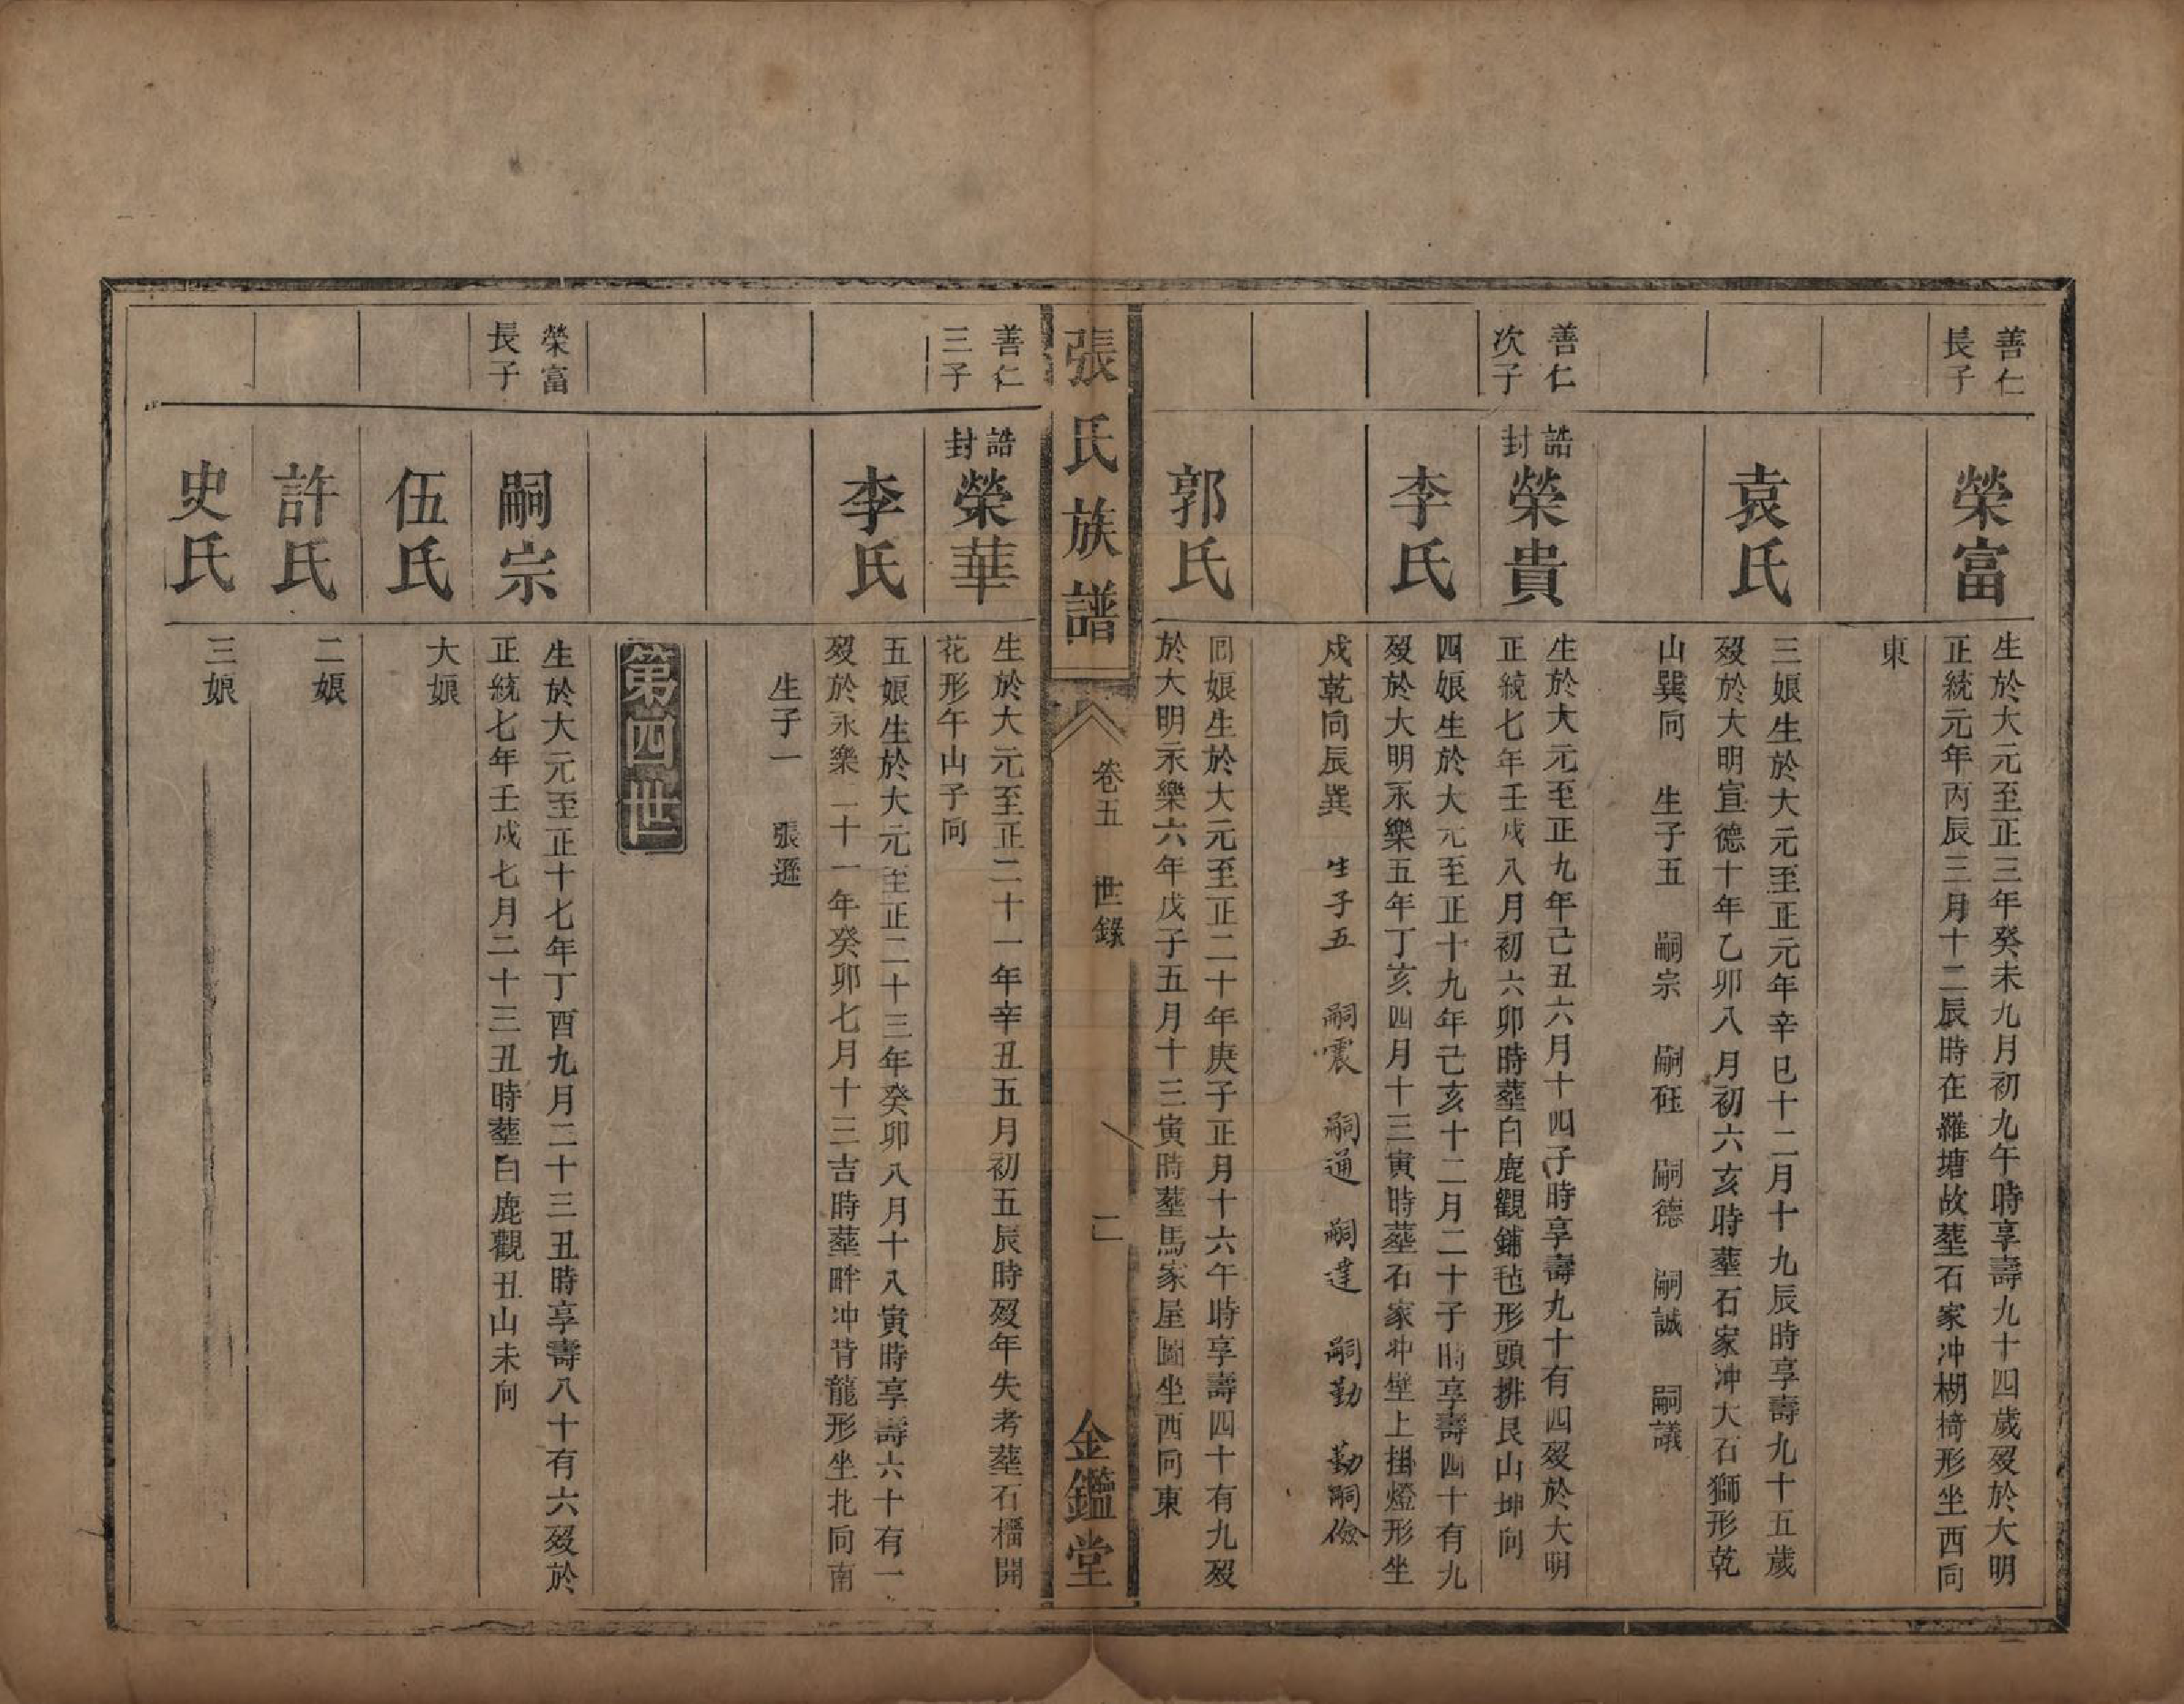 善仁
長子
榮富
生於大元至正三年癸未九月初九午時享壽九十四歲歿於大明
正統元年丙辰三月十二辰時在羅塘故塟石家冲棚椅形坐西向
東
袁氏
三娘生於大元至正元年辛巳十二月十九辰時享壽九十五歲
歿於大明宣德十年乙卯八月初六亥時塟石家冲大石獅形乾
山巽向 生子五 嗣宗 嗣砡 嗣德 嗣誠 嗣議
善仁
次子
誥
封
榮貴
生於大元至正九年己丑六月十四子時享壽九十有四歿於大明
正統七年壬戌八月初六卯時塟白鹿觀鋪毡形頭排艮山坤向
李氏
四娘生於大元至正十九年己亥十二月二十子時享壽四十有九
歿於大明永樂五年丁亥四月十三寅時塟石家冲壁上掛燈形坐
戍乾向辰巽 生子五 嗣震 嗣通 嗣達 嗣勤 勤嗣儉
郭氏
回娘生於大元至正二十年庚子正月十六午時享壽四十有九歿
於大明永樂六年戊子五月十三寅時塟馬家屋圖坐西向東
張氏族譜
卷五 世錄
二
金鑑堂
善仁
三子
誥
封
榮華
生於大元至正二十一年辛丑五月初五辰時歿年失考塟石橊開
花形午山子向
李氏
五娘生於大元至正二十三年癸卯八月十八寅時享壽六十有一
歿於永樂二十一年癸卯七月十三吉時塟畔冲背龍形坐北向南
生子一 張遜
第四世
榮富
長子
嗣宗
生於大元至正十七年丁酉九月二十三丑時享壽八十有六歿於
正統七年壬戌七月二十三丑時塟白鹿觀丑山未向
伍氏
大娘
許氏
二娘
史氏
三娘